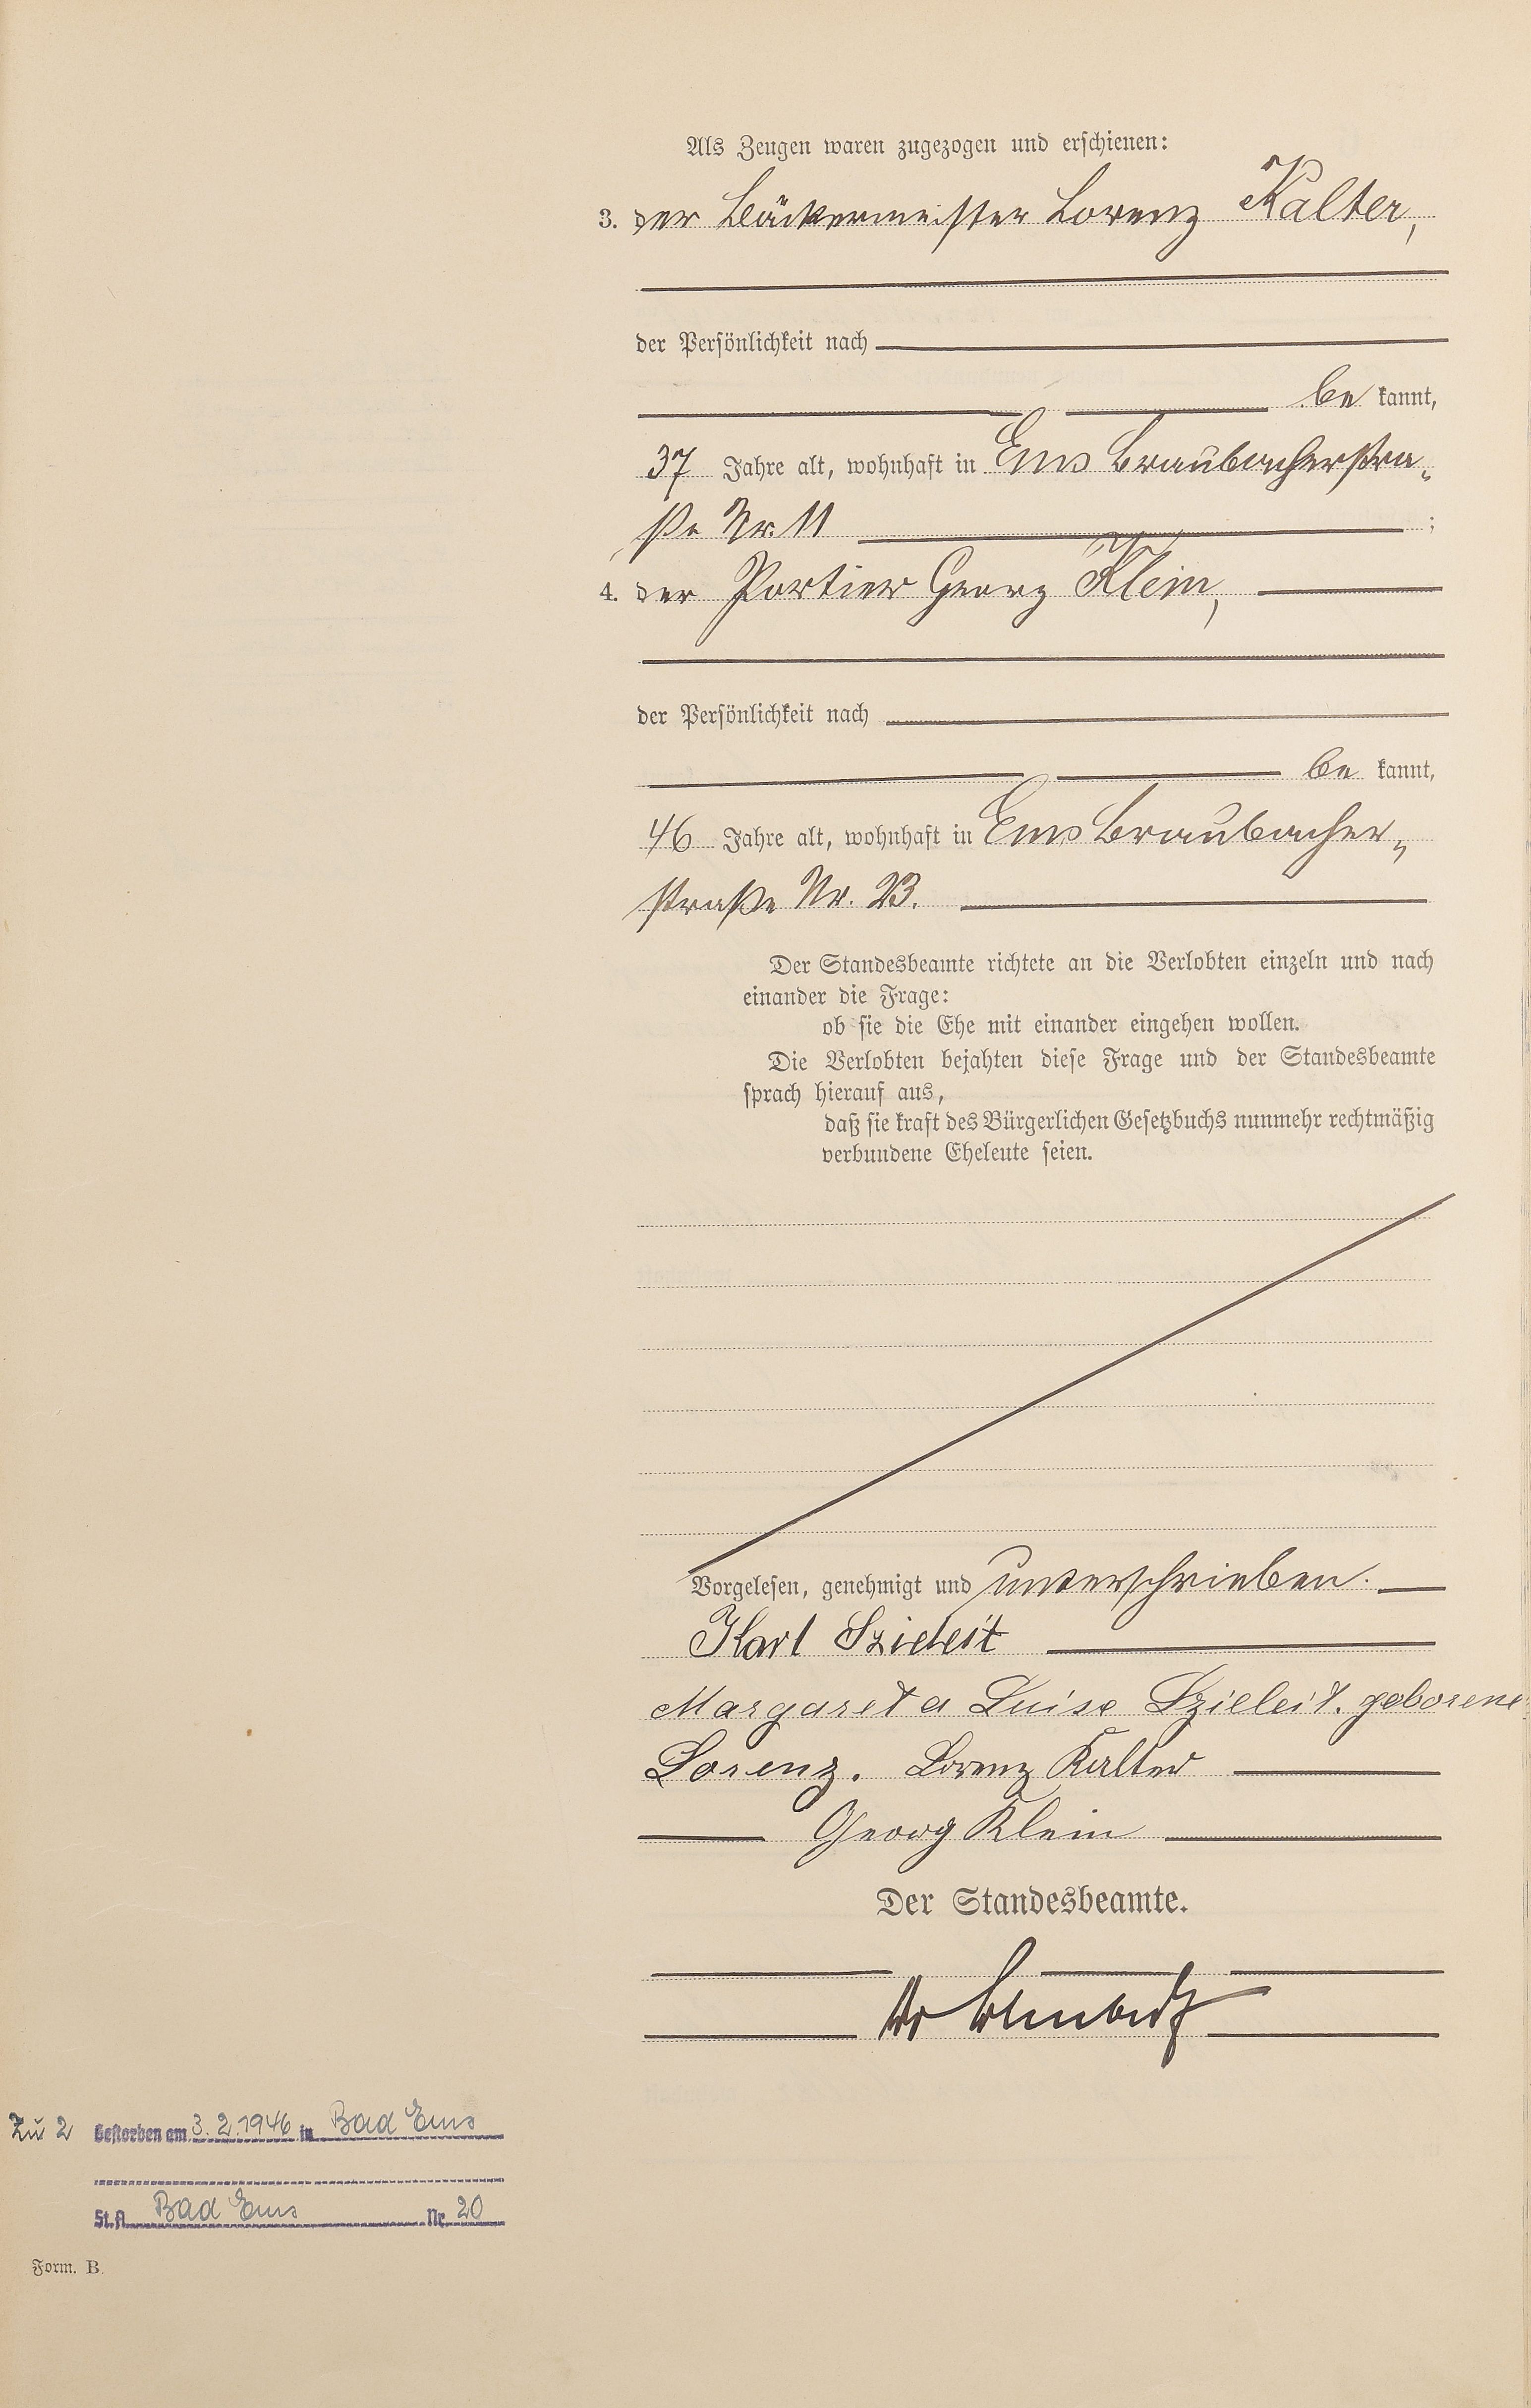 Als Zeugen waren zugezogen und erschienen:
3. der Bäckermeister Lorenz Kalter,
der Persönlichkeit nach
be kannt,
37 Jahre alt, wohnhaft in Ems Braubacherstra-
ße Nr. 11 ;
4. der Portier Georg Klein,
der Persönlichkeit nach
be kannt,
46 Jahre alt, wohnhaft in Ems Braubacher-
straße Nr. 23.
Der Standesbeamte richtete an die Verlobten einzeln und nach
einander die Frage:
ob sie die Ehe mit einander eingehen wollen.
Die Verlobten bejahten diese Frage und der Standesbeamte
sprach hierauf aus,
daß sie kraft des Bürgerlichen Gesetzbuchs nunmehr rechtmäßig
verbundene Eheleute seien.
Vorgelesen, genehmigt und unterschrieben.
Karl Szieleit
Margareta Luise Szieleit. geborene
Lorenz. Lorenz Kalter
Georg Klein
Der Standesbeamte.
Zu 2 Gestorben am 3.2.1946 in Bad Ems
St.A. Bad Ems Nr. 20
Form. B.